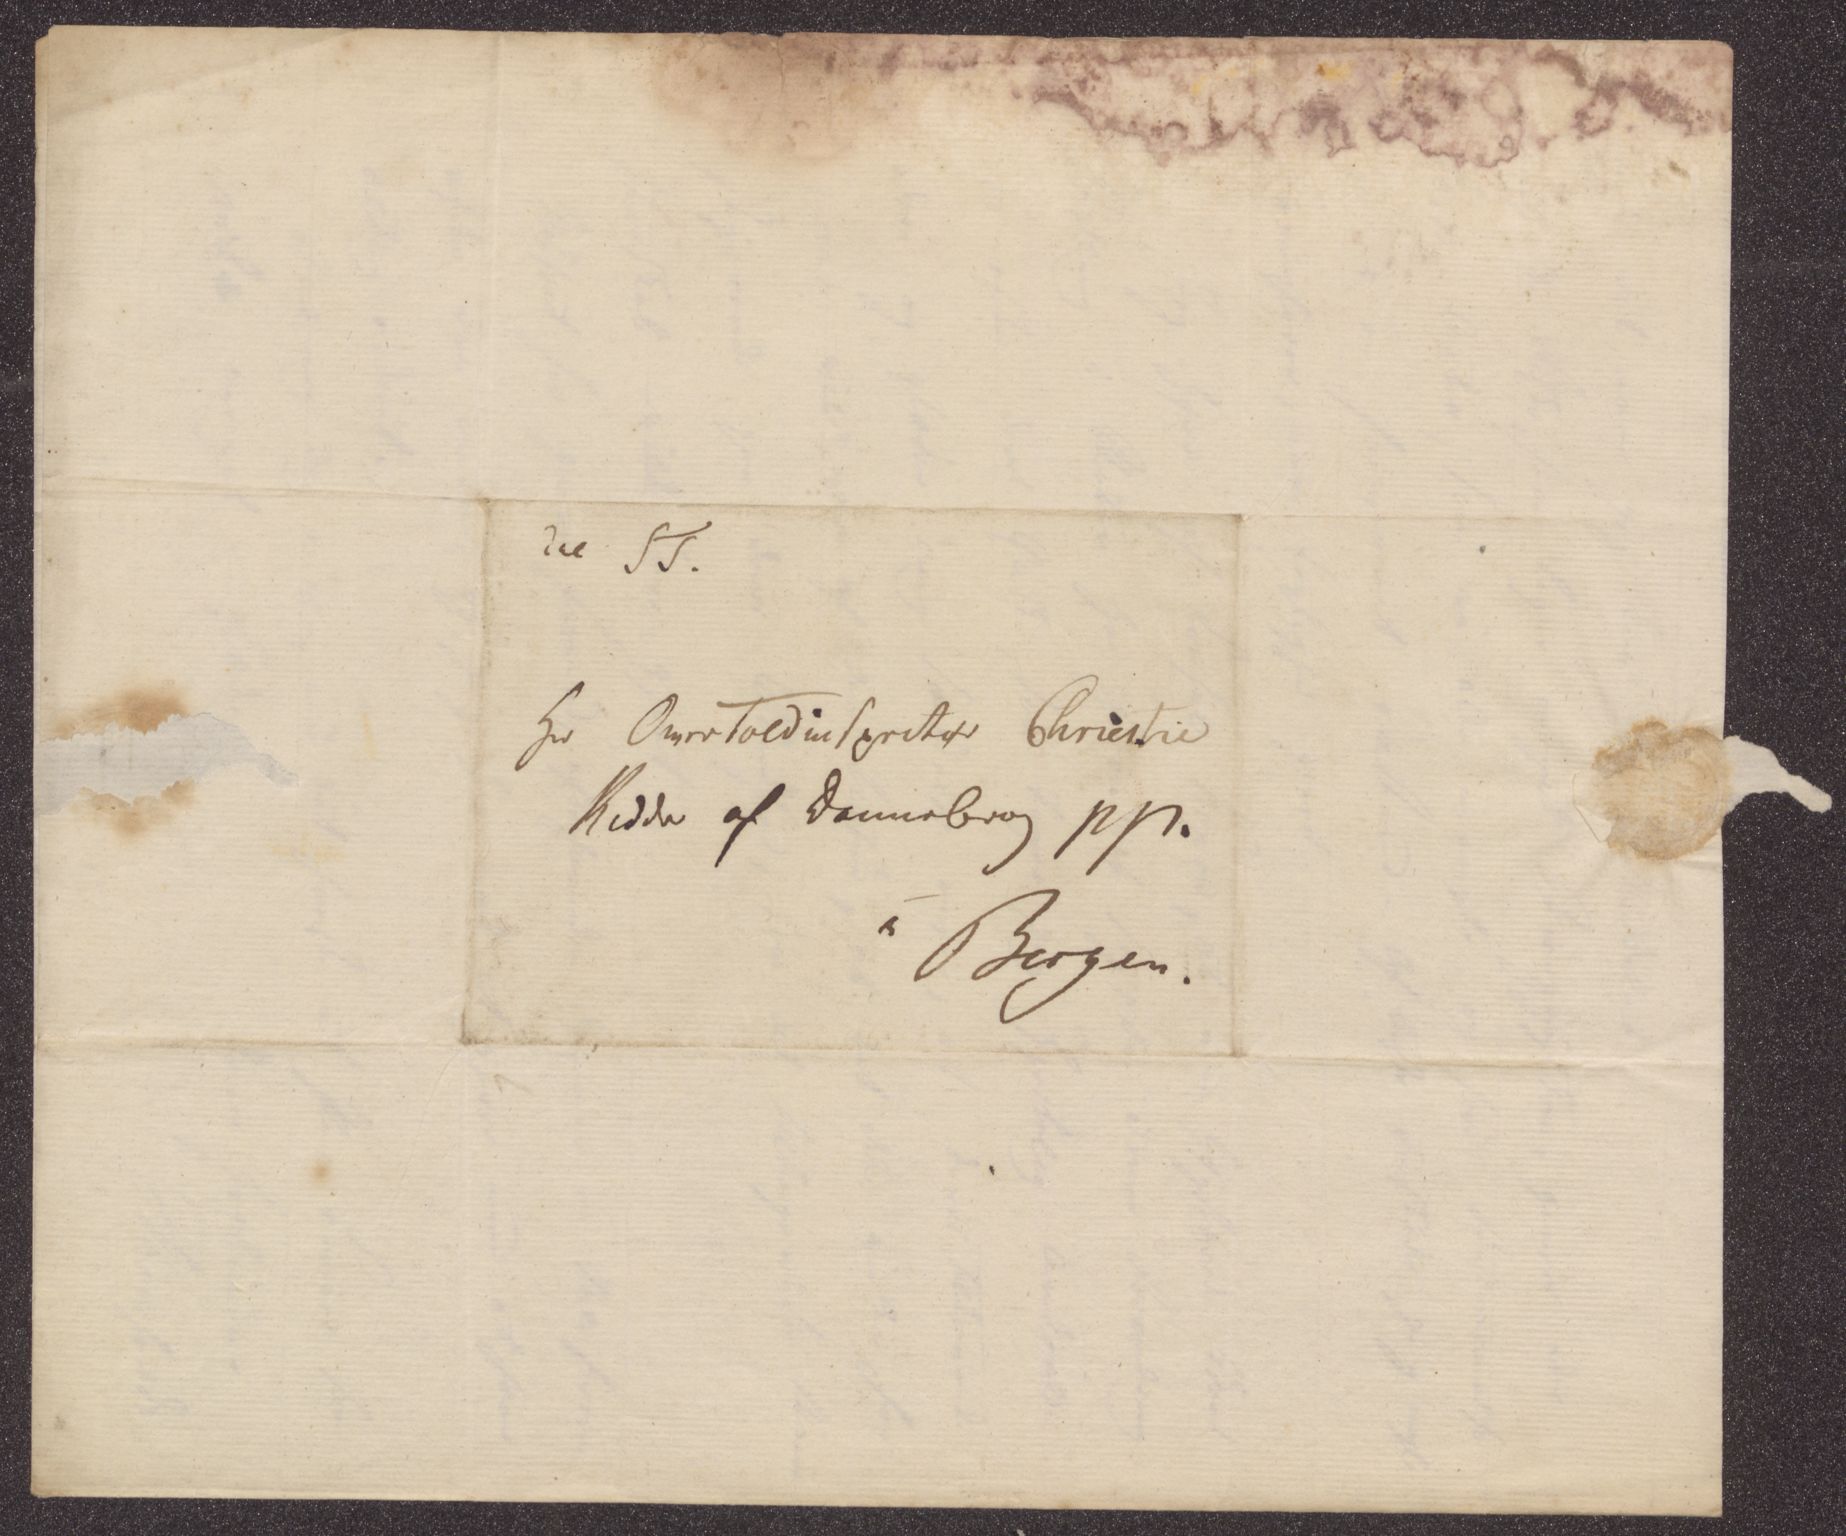 Til ST.
Hr Overtoldinspecteur Christie
Ridder af Dannebrog pp.
i Bergen.